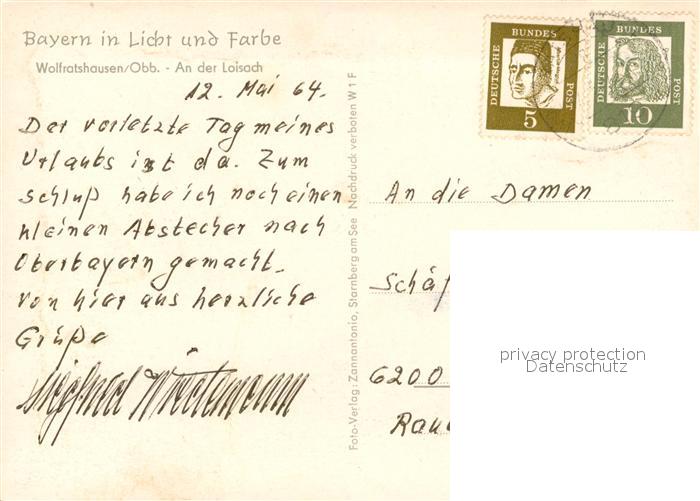 Bayern in Licht und Farbe
Wolfratshausen/Obb. - An der Loisach
12. Mai 64.
Der vorletzte Tag meines
Urlaubs ist da. Zum
Schluß habe ich noch einen
kleinen Abstecher nach
Oberbayern gemacht.
Von hier aus herzliche
Grüße
Siegfried
Foto-Verlag: Zannantonio, Starnberg am See Nachdruck verboten W 1 F
DEUTSCHE BUNDES POST
5
DEUTSCHE BUNDES POST
10
An die Damen
Schäf
6200
Rau
privacy protection
Datenschutz